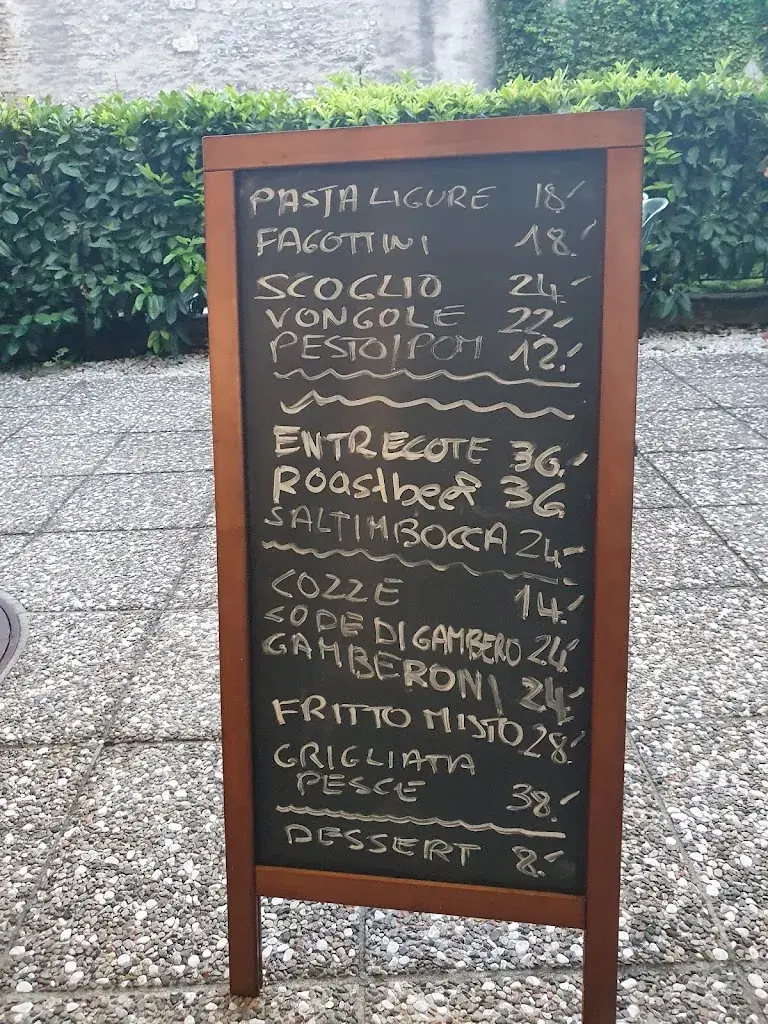 PASTA LIGURE 18.-
FAGOTTINI 18.-
SCOGLIO 24.-
VONGOLE 22.-
PESTO/POM 12.-
ENTRECOTE 36.-
Roastbeef 36
SALTIMBOCCA 24.-
COZZE 14.-
CODE DI GAMBERO 24.-
GAMBERONI 24.-
FRITTO MISTO 28.-
GRIGLIATA
PESCE 38.-
DESSERT 8.-